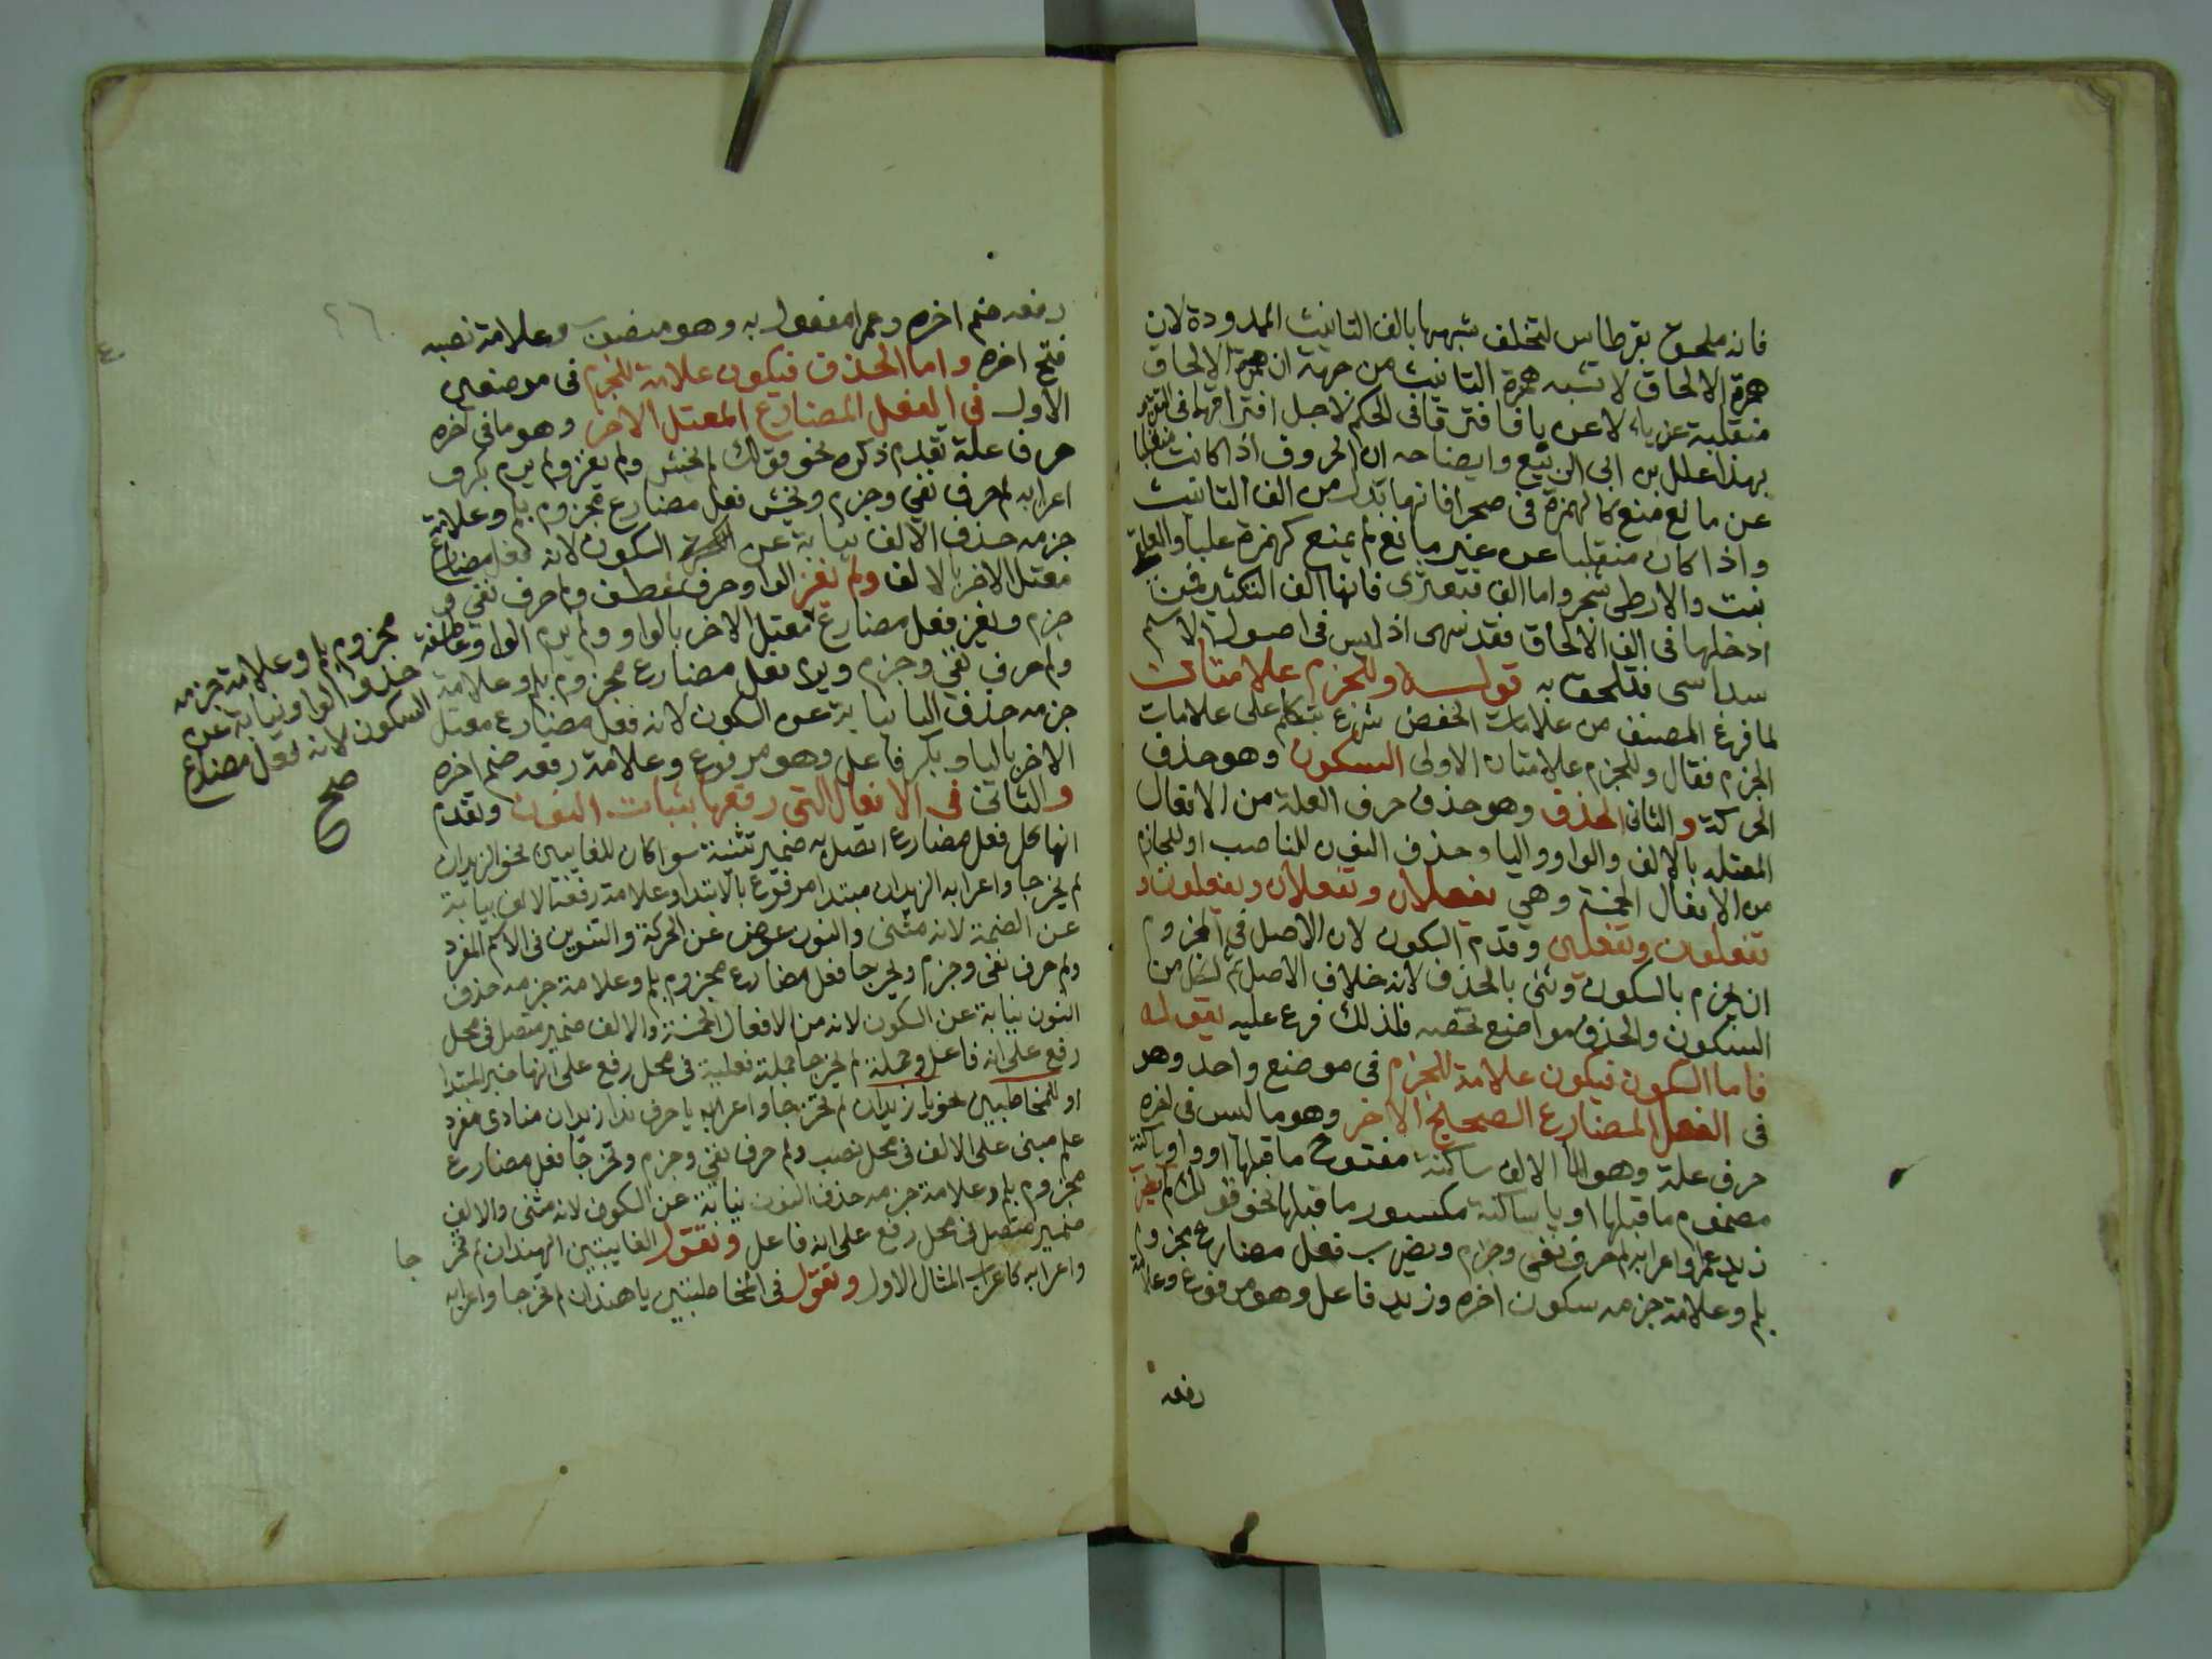 فانه ملحق بقرطاس لتخلف شبهها بالف التانيث الممدودة لان
همزة الالحاق لا تشبه همزة التانيث من جهة ان همزة الالحاق
منقلبة عن ياء لا عن يا فافترقا في الحكم لاجل افتراقهما في التقدير
بهذا علل بن ابي الربيع وايضاحه ان الحروف اذا كانت منقلبا
عن مانع منع كالهمزة في صحرا فانها بدل من الف التانيث
واذا كان منقلبا عن غير مانع لم يمنع كهمزة علبا والعلقى
نبت والارطى شجر واما الف قبعثرى فانها الف التكثير فمن
ادخلها في الف الالحاق فقد سهى اذ ليس في اصول الاسم
سداسى فتلحق به قوله وللجزم علامتان
لما فرغ المصنف من علامات الخفض شرع يتكلم على علامات
الجزم فقال وللجزم علامتان الاولى السكون وهو حذف
الحركة والثانى الحذف وهو حذف حرف العلة من الافعال
المعتله بالالف والواو واليا وحذف النون للناصب او للجازم
من الافعال الخمسة وهي يفعلان وتفعلان ويفعلون و
تفعلون وتفعلين وقدم السكون لان الاصل في المجزوم
ان يجزم بالسكون وثنى بالحذف لانه خلاف الاصل ثم لكل من
السكون والحذف مواضع تخصه فلذلك فرع عليه بقوله
فاما السكون فيكون علامة للجزم في موضع واحد وهو
في الفعل المضارع الصحيح الاخر وهو ما ليس في اخره
حرف علة وهو الالف ساكنة مفتوح ما قبلها او واو ساكنة
مضموم ما قبلها او يا ساكنة مكسور ما قبلها نحو قولك لم يضرب
زيد عمرا واعرابه لم حرف نفي وجزم ويضرب فعل مضارع مجزوم
بلم وعلامة جزمه سكون اخره وزيد فاعل وهو مرفوع وعلامة
رفعه
رفعه ضم اخره وعمرا مفعول به وهو منصوب وعلامة نصبه
فتح اخره واما الحذف فيكون علامة للجزم في موضعين
الاول في الفعل المضارع المعتل الاخر وهو ما في اخره
حرف علة تقدم ذكره نحو قولك لم يخش ولم يغز ولم يرم بكر و
اعرابه لم حرف نفي وجزم ويخش فعل مضارع مجزوم بلم وعلامة
جزمه حذف الالف نيابة عن السكون لانه فعل مضارع
معتل الاخر بالالف ولم يغز الواو حرف عطف ولم حرف نفي و
جزم ويغز فعل مضارع معتل الاخر بالواو ولم يرم الواو عاطفة
ولم حرف نفي وجزم ويرم فعل مضارع مجزوم بلم وعلامة
جزمه حذف اليا نيابة عن السكون لانه فعل مضارع معتل
الاخر باليا وبكر فاعل وهو مرفوع وعلامة رفعه ضم اخره
والثانى في الافعال التي رفعها بثبات النون وتقدم
انها كل فعل مضارع اتصل به ضمير تثنية سوا كان للغايبين نحو الزيدان
لم يخرجا واعرابه الزيدان مبتدا مرفوع بالابتدا وعلامة رفعه الالف نيابة
عن الضمة لانه مثنى والنون عوض عن الحركة والتنوين في الاسم المفرد
ولم حرف نفي وجزم ويخرجا فعل مضارع مجزوم بلم وعلامة جزمه حذف
النون نيابة عن السكون لانه من الافعال الخمسة والالف ضمير متصل في محل
رفع على انه فاعل وجملة لم يخرجا جملة فعلية في محل رفع على انها خبر المبتدا
او للمخاطبين نحو يا زيدان لم تخرجا واعرابه يا حرف ندا زيدان منادى مفرد
علم مبنى على الالف في محل نصب ولم حرف نفي وجزم وتخرجا فعل مضارع
مجزوم بلم وعلامة جزمه حذف النون نيابة عن السكون لانه مثنى والالف
ضمير متصل في محل رفع على انه فاعل وتقول الغايبتين الهندان لم تخر جا
واعرابه كاعراب المثال الاول وتقول في المخاطبتين يا هندان لم تخرجا واعرابه
مجزوم بلم وعلامة جزمه
حذف الواو نيابة عن
السكون لانه فعل مضارع
صح
٢٦